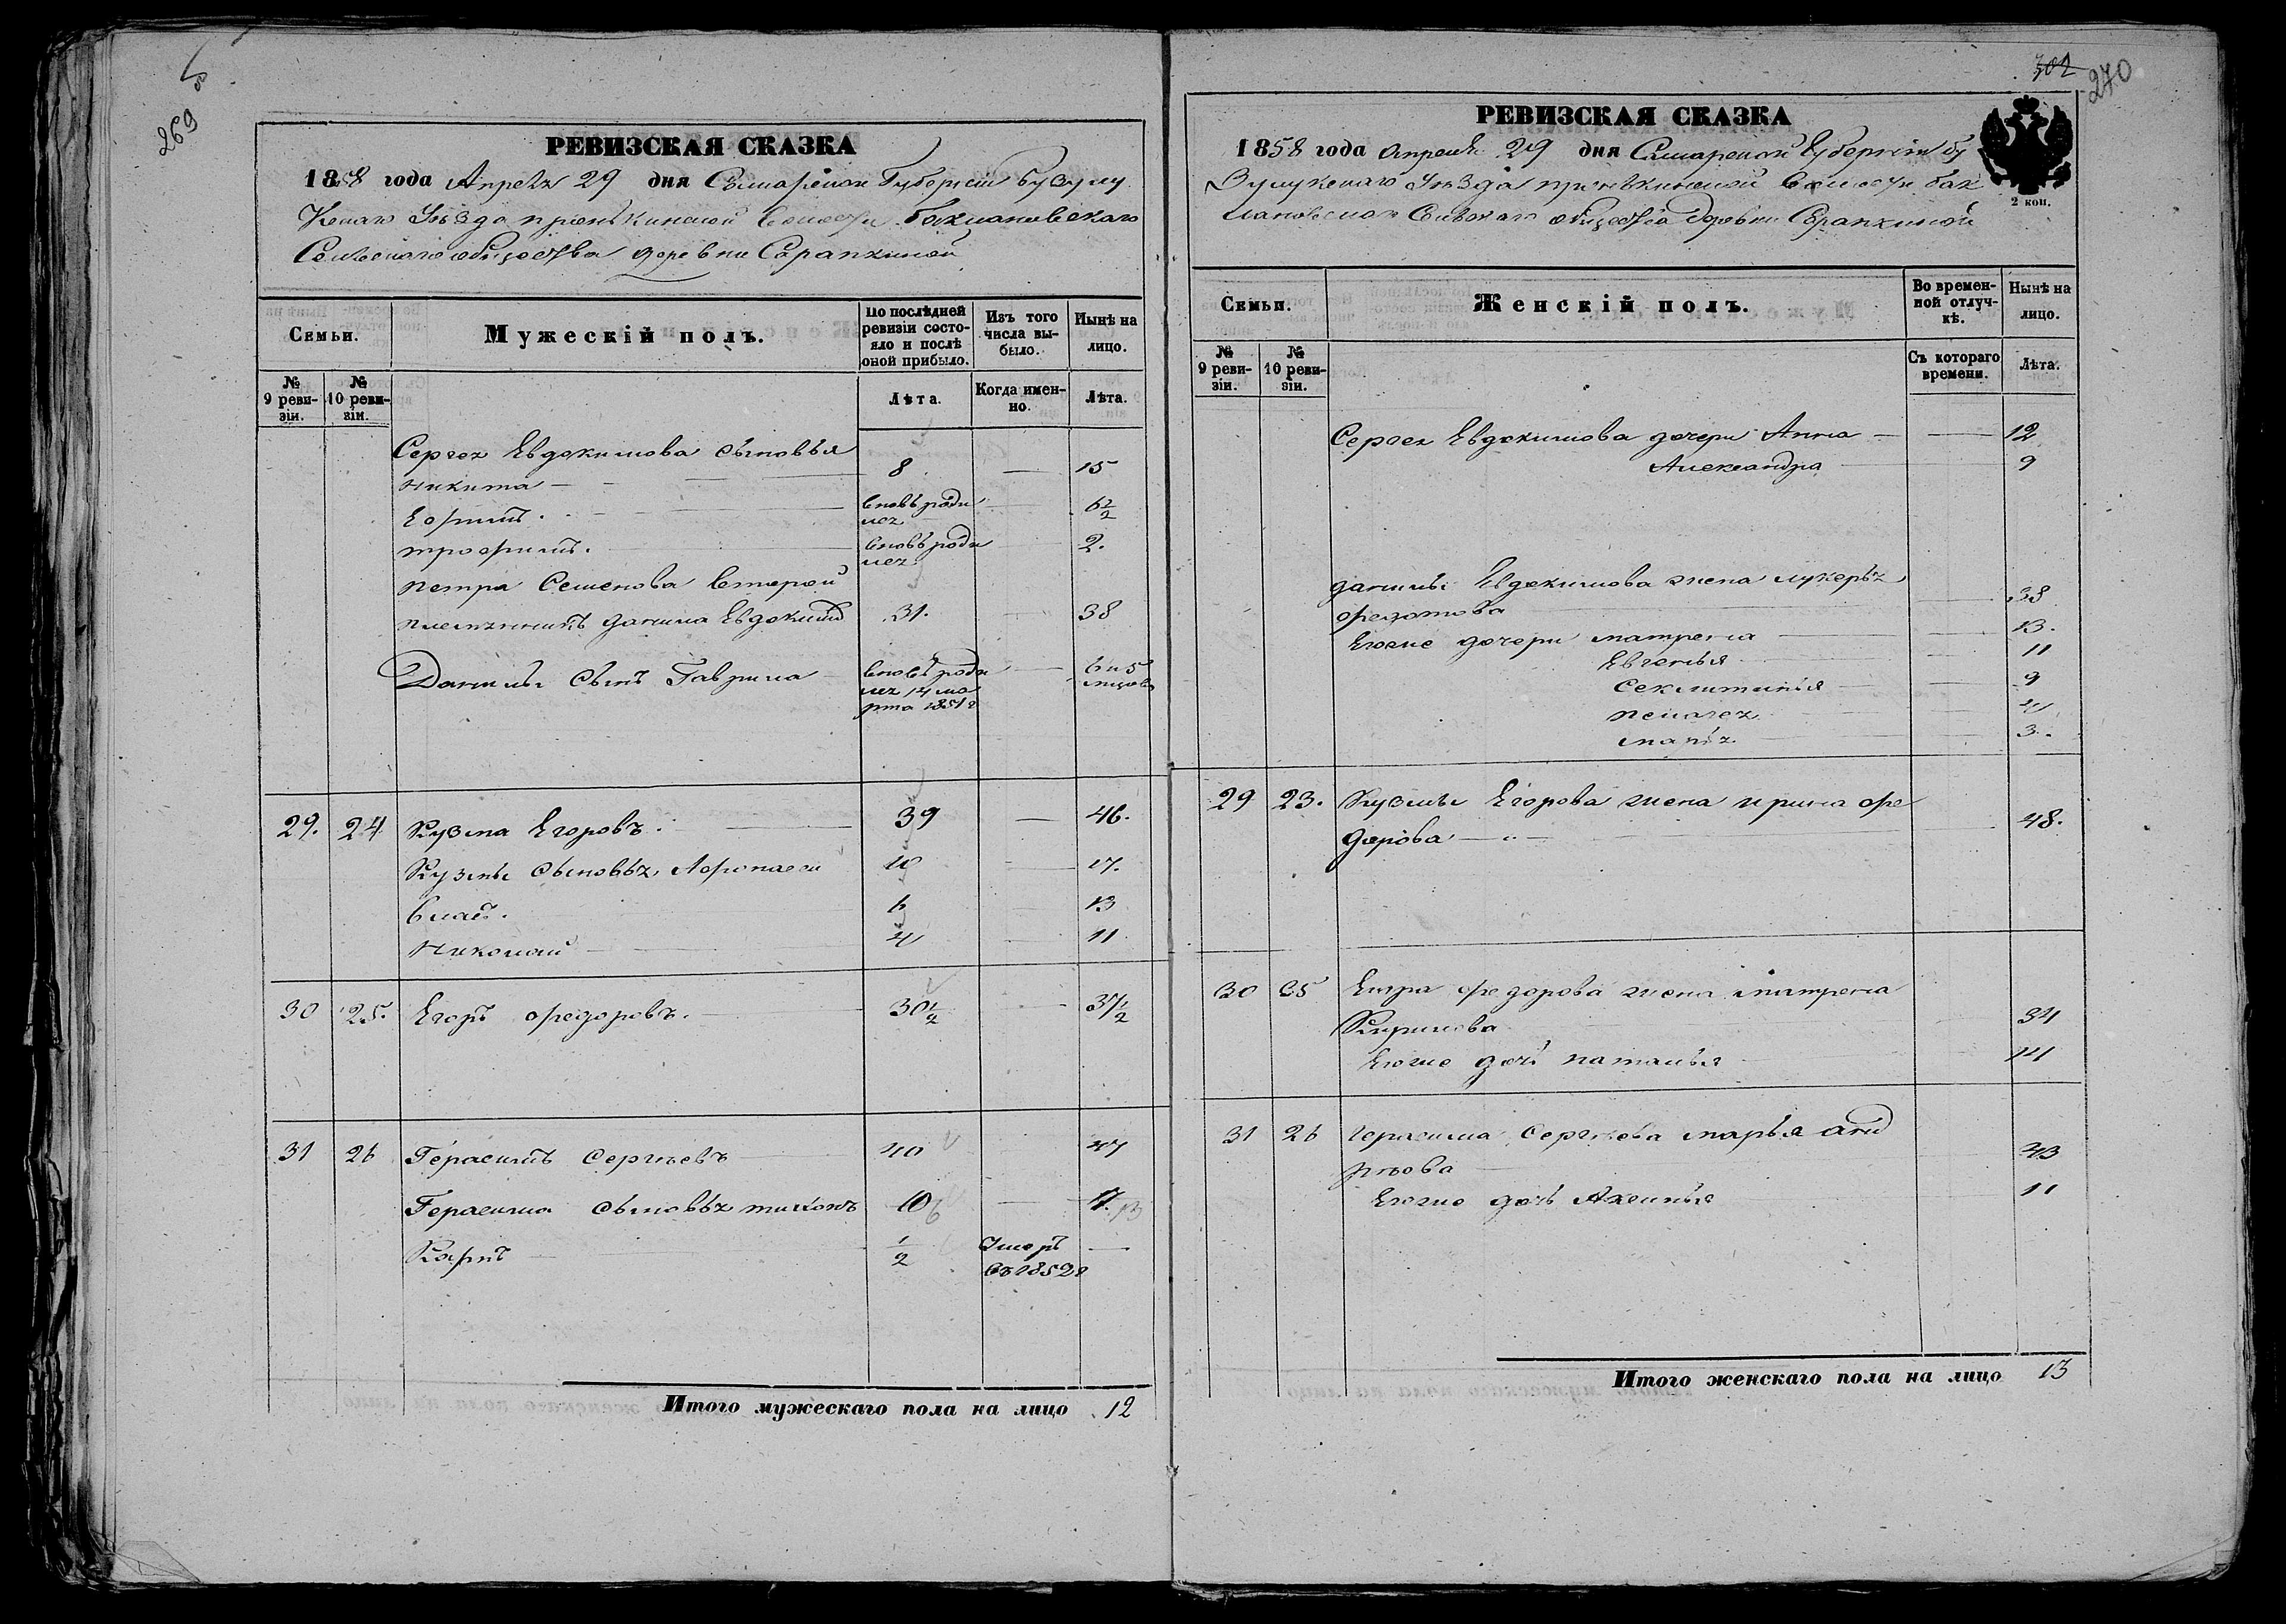 269
РЕВИЗСКАЯ СКАЗКА
1858 года Апреля 29 дня Самарской Губернiи бузулу
Кскаго Уѣзда пронькинской Волости Бахмановскаго
Сельскаго общества деревни Сарапкиной
Семьи.
Мужескiй полъ.
По послѣдней ревизiи состояло и послѣ оной прибыло.
Изъ того числа выбыло.
Нынѣ на лицо.
№ 9 ревизiи.
№ 10 ревизiи.
Лѣта.
Когда именно.
Лѣта.
Сергея Евдокимова сыновья
никита 8 15
Ефимъ. вновь роди 6½
лся
трофимъ. вновь роди 2.
лся
петра Семенова второй
племянникъ данила Евдокимъ 31. 38
Данилы сынъ Гаврила вновь роди 6 и 5
лся 14 ма мцовъ
рта 1851 г
29. 24 Кузма Егоровъ. 39 46.
Кузмы сыновья, Афонасей 10 17.
власъ. 6 13
николай 4 11
30 25. Егоръ федоровъ. 30½ 37½
31 26 Герасимъ Сергѣевъ 40 47
Герасима сыновья тихонъ 10 6 17. 13
Карпъ ½ Умеръ
въ 1852 г
Итого мужескаго пола на лицо 12
302
270
РЕВИЗСКАЯ СКАЗКА
1858 года апреля 29 дня Самарской Губернiи бу
Зулукскаго Уѣзда пронькинской Волости бах
мановскаго Сельскаго общества деревни Сарапкиной
2 коп.
Семьи.
Женскiй полъ.
Во временной отлучкѣ.
Нынѣ на лицо.
№ 9 ревизiи.
№ 10 ревизiи.
Съ котораго времени.
Лѣта.
Сергея Евдокимова дочери Анна 12
Александра 9
данилы Евдокимова жена лукерья
федотова 38
Егоже дочери матрена 13.
Евгенья 11
Секлитинья 9
пелагея 4
марья 3.
29 23. Кузмы Егорова жена ирина фе
дорова 48.
30 25 Егора федорова жена матрена
Кирилова 34
Егоже дочь наталья 14
31 26 герасима Сергѣева марья анд
рѣева 43
Егоже дочь Аксинья 11
Итого женскаго пола на лицо 13